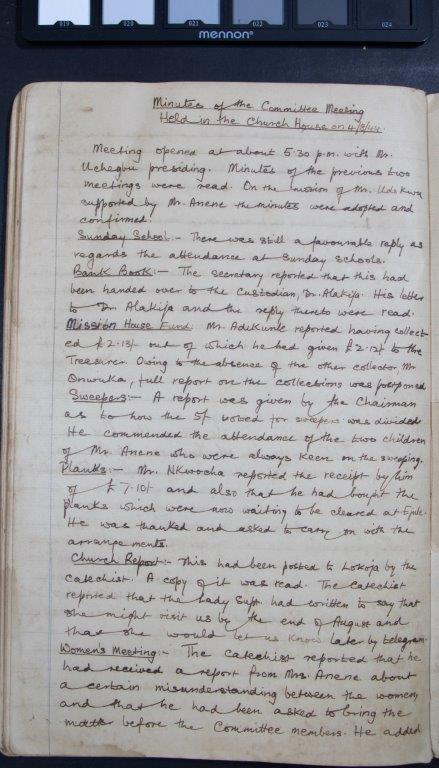 019 020 021 022 023 024
mennon
Minutes of the Committee Meeting
Held in the Church House on 4/8/44.
Meeting opened at about 5.30 p.m. with Mr.
Uchegbu presiding. Minutes of the previous two
meetings were read. On the motion of Mr. Udokwu
supported by Mr. Anene the minutes were adopted and
confirmed.
Sunday School:- There was still a favourable reply as
regards the attendance at Sunday Schools.
Bank Book:- The secretary reported that this had
been handed over to the Custodian, Dr. Alakija. His letter
to Dr. Alakija and the reply thereto were read.
Mission House Fund. Mr. Adekunle reported having collect-
ed £2.13/- out of which he had given £2.12/- to the
Treasurer. Owing to the absence of the other collector, Mr
Onwuka, full report on the collections was postponed.
Sweepers:- A report was given by the Chairman
as to how the 5/- voted for sweepers was divided.
He commended the attendance of the two children
of Mr. Anene who were always keen on the sweeping.
Planks:- Mr. Nkwocha reported the receipt by him
of £7.10/- and also that he had bought the
planks which were now waiting to be cleared at
He was thanked and asked to carry on with the
arrangements.
Church Report:- This had been posted to Lokoja by the
catechist. A copy of it was read. The Catechist
reported that the Lady Supt. had written to say that
she might visit us by the end of August and
that she would let us know later by telegram.
Women's Meeting:- The Catechist reported that he
had received a report from Mrs. Anene about
a certain misunderstanding between the women
and that he had been asked to bring the
matter before the Committee members. He added